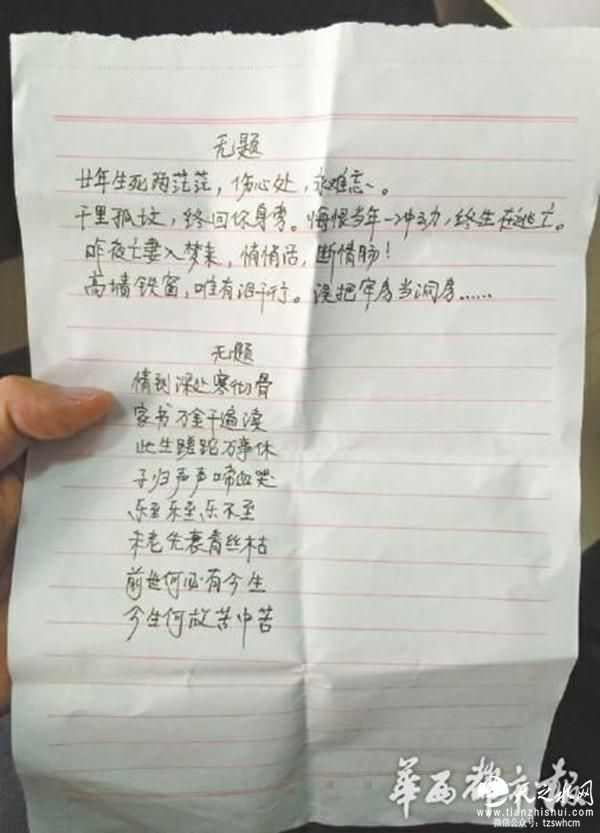 无题
廿年生死两茫茫，伤心处，永难忘。
千里孤坟，终回你身旁。悔恨当年一冲动，终生在逃亡。
昨夜亡妻入梦来，悄悄话，断情肠！
高墙铁窗，唯有泪千行。误把牢房当洞房……
无题
情到深处寒彻骨
家书万金千遍读
此生蹉跎万事休
子归声声啼血哭
乐至乐至乐不至
未老先衰青丝枯
前世何必有今生
今生何故苦中苦
华西都市报
天之水网
www.tianzhishui.com
微信公众号：tzswhcm